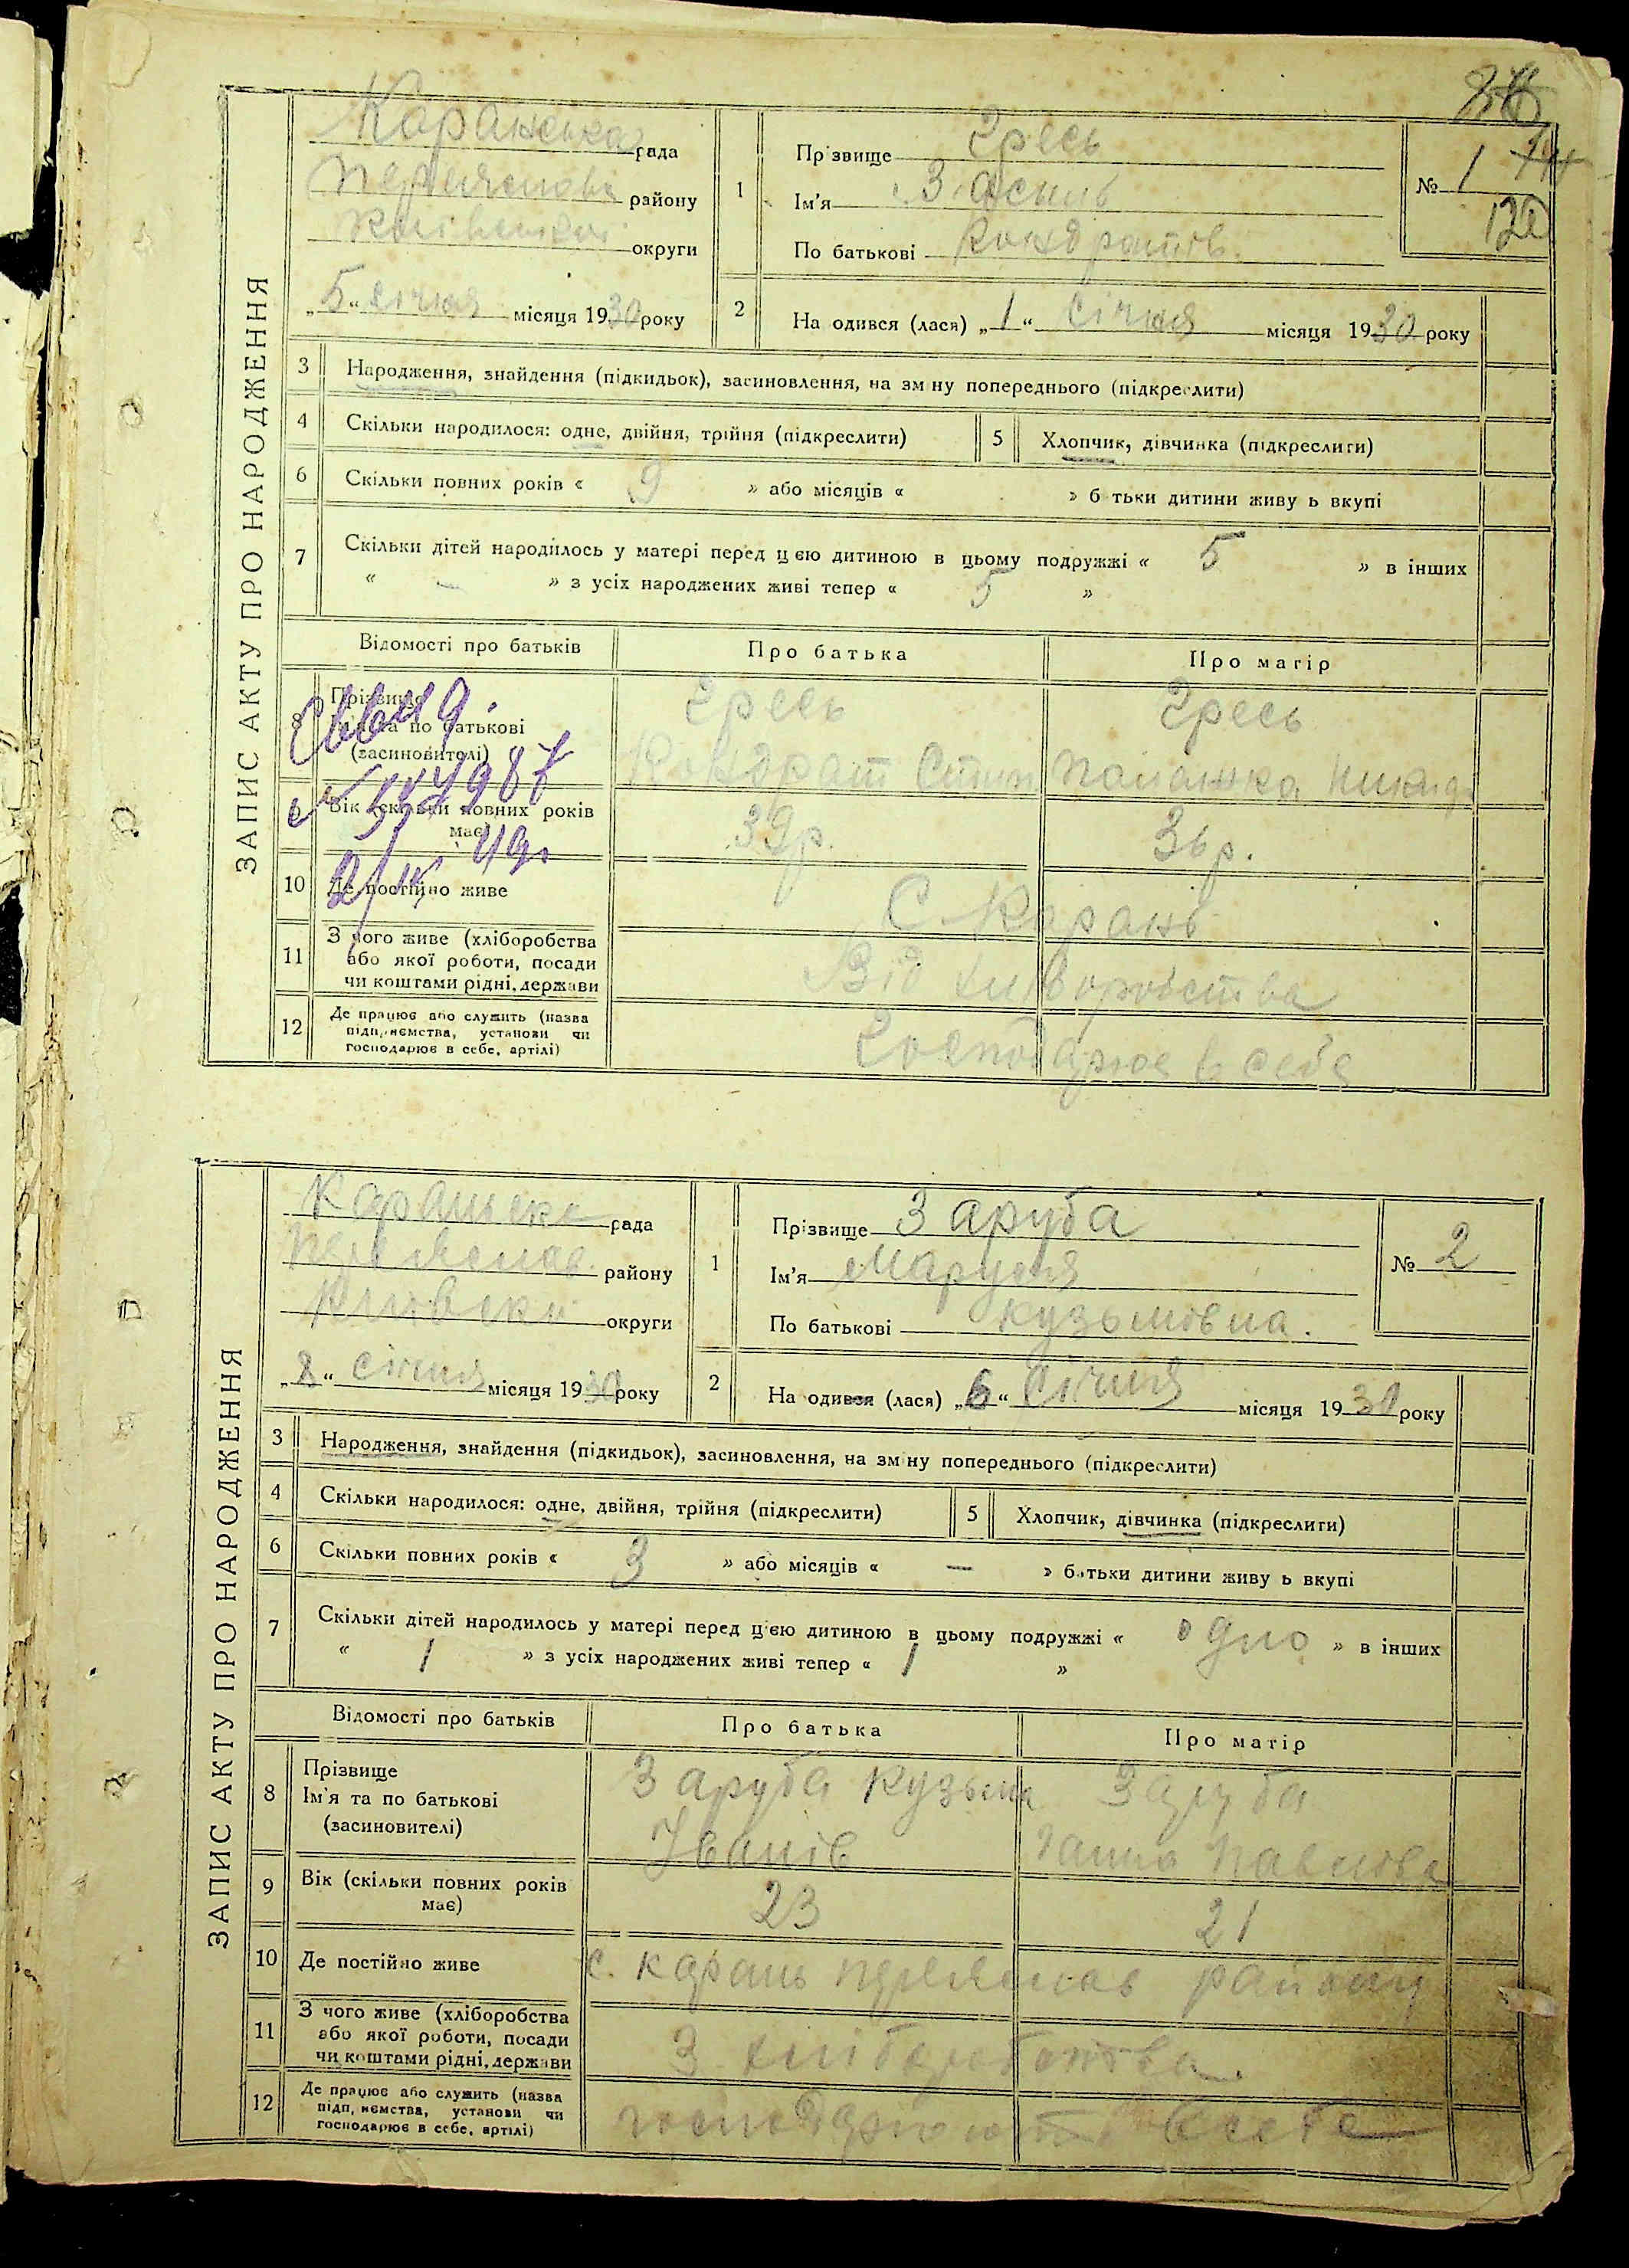 ЗАПИС АКТУ ПРО НАРОДЖЕННЯ
Каранська рада
району
округи
„5“ січня місяця 1930 року
1
Прізвище Гресь
Ім'я Василь
По батькові Кондратів
№ 1
2
На одився (лася) „1“ Січня місяця 1930 року
3 Народження, знайдення (підкидьок), засиновлення, на зм ну попереднього (підкреслити)
4 Скільки народилося: одне, двійня, трійня (підкреслити)
5 Хлопчик, дівчинка (підкреслити)
6 Скільки повних років « 9 » або місяців « » б тьки дитини живу ь вкупі
7 Скільки дітей народилось у матері перед цією дитиною в цьому подружжі « 5 » в інших
« — » з усіх народжених живі тепер « 5 »
Відомості про батьків Про батька Про матір
8 Прізвище
Ім'я та по батькові
(засиновителі)
Гресь
Кондрат Степ
Гресь
9 Вік (скільки повних років
має)
39р. 36р.
10 Де постійно живе
С. Карань
11 З чого живе (хліборобства
або якої роботи, посади
чи коштами рідні, держави
Від хліборобства
12 Де працює або служить (назва
підприємства, установи чи
господарює в себе, артілі)
Господарює в себе
ЗАПИС АКТУ ПРО НАРОДЖЕННЯ
Каранська рада
Переяслав. району
округи
„8“ січня місяця 1930 року
1
Прізвище Заруба
Ім'я Маруся
По батькові Кузьмовна.
№ 2
2
На одився (лася) „6“ Січня місяця 1930 року
3 Народження, знайдення (підкидьок), засиновлення, на зм ну попереднього (підкреслити)
4 Скільки народилося: одне, двійня, трійня (підкреслити)
5 Хлопчик, дівчинка (підкреслити)
6 Скільки повних років « 3 » або місяців « — » батьки дитини живу ь вкупі
7 Скільки дітей народилось у матері перед цією дитиною в цьому подружжі « одно » в інших
« 1 » з усіх народжених живі тепер « 1 »
Відомості про батьків Про батька Про матір
8 Прізвище
Ім'я та по батькові
(засиновителі)
Заруба Кузьма
Іванів
Заруба
Ганна Павлова
9 Вік (скільки повних років
має)
23 21
10 Де постійно живе
с. Карань Переяслав району
11 З чого живе (хліборобства
або якої роботи, посади
чи коштами рідні, держави
З хліборобства.
12 Де працює або служить (назва
підп, иємства, установи чи
господарює в себе, артілі)
в себе